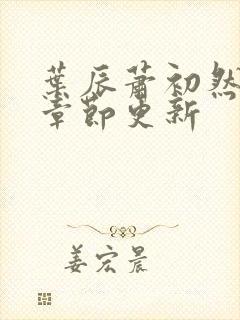 葉辰蕭初然
章節更新
姜宏晨